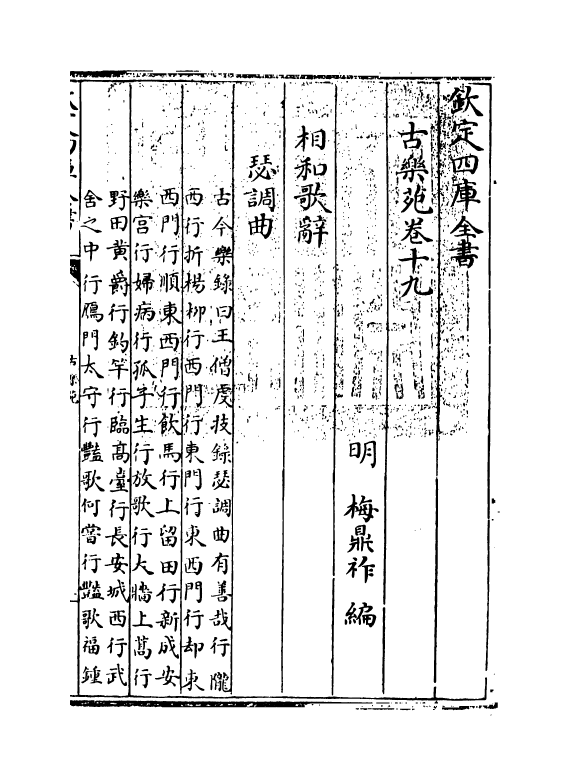 欽定四庫全書
古樂苑卷十九
明 梅鼎祚 編
相和歌辭
瑟調曲
古今樂錄曰王僧虔技錄瑟調曲有善哉行隴
西行折楊栁行西門行東門行東西門行却東
西門行順東西門行飲馬行上留田行新成安
樂宫行婦病行孤子生行放歌行大牆上蒿行
野田黄爵行釣竿行臨髙臺行長安城西行武
舍之中行鴈門太守行豔歌何嘗行豔歌福鍾